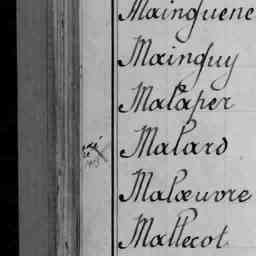 Mainguene
Mainguy
Malaper
Malard
Malœuvre
Mallecot